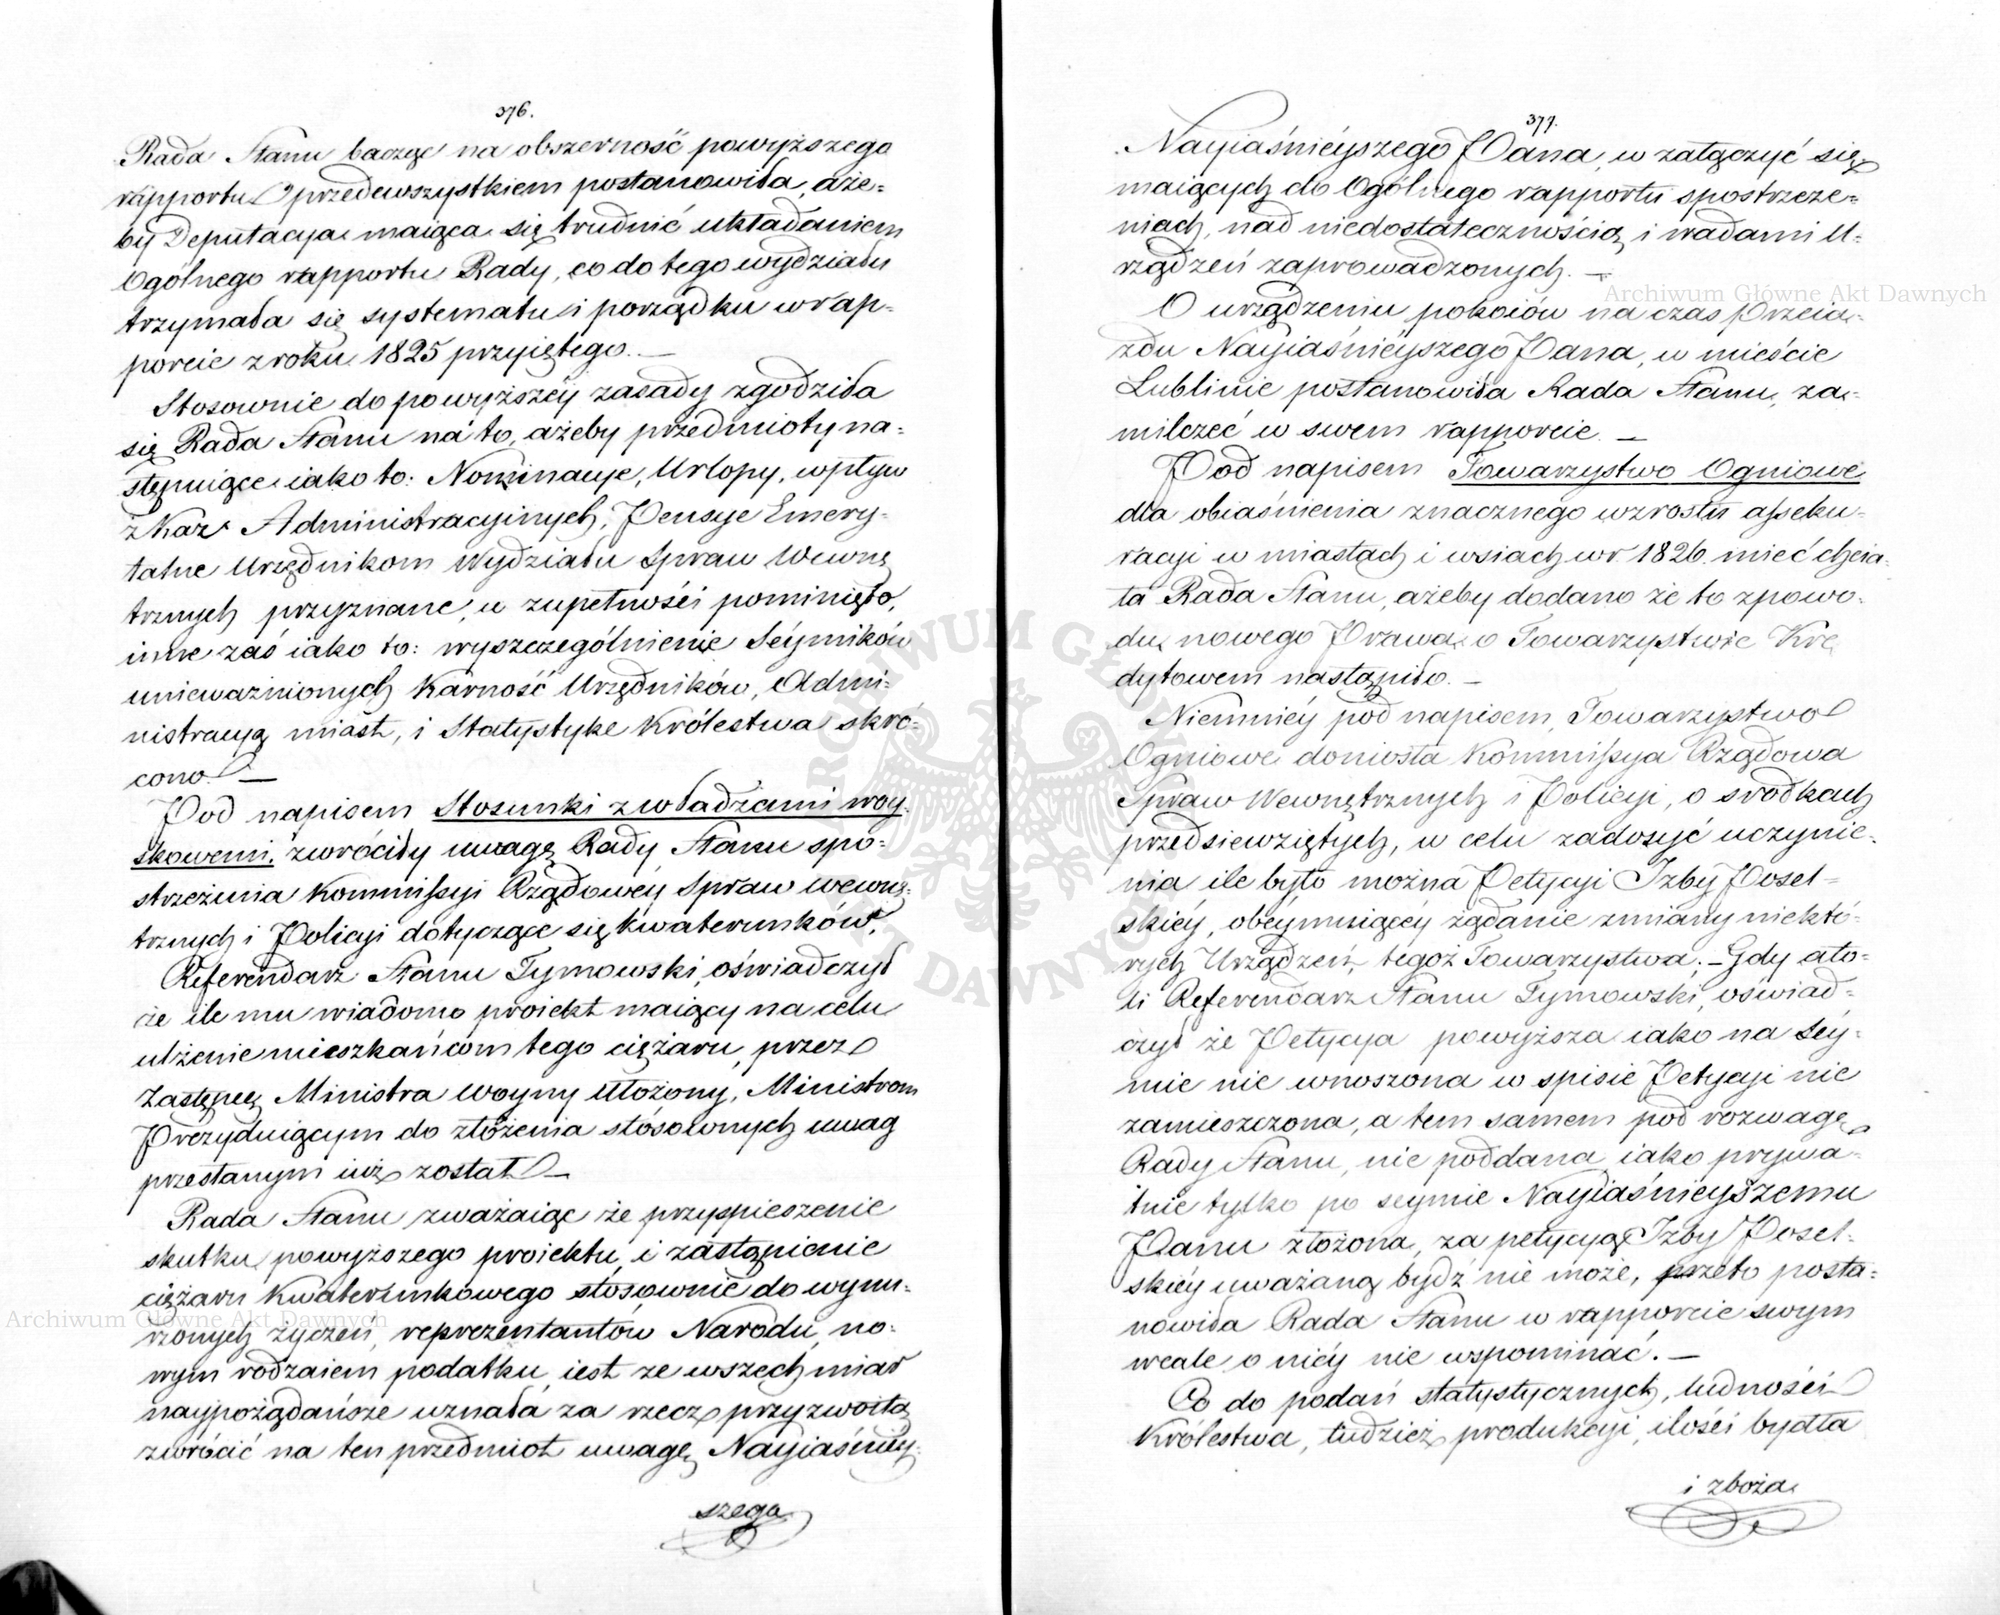 376.
Rada Stanu bacząc na obszerność powyższego
rapportu przedewszystkiem postanowiła, aże=
by Deputacya maiąca się trudnić układaniem
Ogólnego rapportu Rady, co do tego wydziału
trzymała się systematu i porządku w rap=
porcie z roku 1825 przyiętego. —
Stosownie do powyższéy zasady zgodziła
się Rada Stanu na to, ażeby przedmioty na=
stępuiące iako to: Nominacye, Urlopy, wpływ
z Kar Administracyinych, Pensye Emery=
talne Urzędnikom Wydziału Spraw Wewnę
trznych przyznane, w zupełności pominięto,
inne zaś iako to: wyszczególnienie Séymików
unieważnionych Karność Urzędników, Admi=
nistracyą miast, i Statystykę Królestwa skró=
cono. —
Pod napisem Stosunki z władzami woy=
skowemi, zwróciły uwagę Rady Stanu spo=
strzeżenia Kommissyi Rządowéy Spraw Wewnę=
trznych i Policyi dotyczące się kwaterunków.
Referendarz Stanu Tymowski, oświadczył
że ile mu wiadomo proiekt maiący na celu
ulżenie mieszkańcom tego ciężaru, przez
Zastępcę Ministra Woyny Ułożony, Ministrom
Prezyduiącym do złożenia stosownych uwag
przesłanym iuż został. —
Rada Stanu zważaiąc że przyspieszenie
skutku powyższego proiektu, i zastąpienie
ciężaru Kwaterunkowego stosownie do wynu=
rzonych życzeń, reprezentantów Narodu, no=
wym rodzaiem podatku, iest ze wszech miar
naypożądańsze uznała za rzecz przyzwoitą
zwrócić na ten przedmiot uwagę Nayiaśniéy=
szego
377.
Nayiaśniéyszego Pana, w załączyć się
maiących do Ogólnego rapportu spostrzeże=
niach, nad niedostatecznością i wadami U=
rządzeń zaprowadzonych. —
O urządzeniu pokoiów na czas Przeia=
zdu Nayiaśniéyszego Pana, w mieście
Lublinie postanowiła Rada Stanu, za=
milczeć w swem rapporcie. —
Pod napisem Towarzystwo Ogniowe
dla obiaśnienia znacznego wzrostu asseku=
racyi w miastach i wsiach w r. 1826. mieć chcia=
ła Rada Stanu, ażeby dodano że to z powo=
du nowego Prawa o Towarzystwie Kre
dytowem nastąpiło. —
Niemniéy pod napisem, Towarzystwo
Ogniowe doniosła Kommissya Rządowa
Spraw Wewnętrznych i Policyi, o środkach
przedsiewziętych, w celu zadosyć uczynie=
nia ile było można Petycyi Izby Posel=
skiéy, obeymuiącéy żądanie zmiany niektó=
rych Urządzeń, tegoż Towarzystwa; – Gdy ato=
li Referendarz Stanu Tymowski, oświad=
czył że Petycya powyższa iako na Séy=
mie nie wnoszona w spisie Petycyi nie
zamieszczona, a tem samem pod rozwagę
Rady Stanu, nie poddana iako prywa=
tnie tylko po seymie Nayiaśnieyszemu
Panu złożona, za petycyą Izby Posel=
skiéy uważaną bydź nie może, przeto posta=
nowiła Rada Stanu w rapporcie swym
wcale o niéy nie wspominać. —
Co do podań statystycznych, ludności
Królestwa, tudzież produkcyi, ilości bydła
i zboża
Archiwum Główne Akt Dawnych
Archiwum Główne Akt Dawnych
ARCHIWUM GŁÓWNE AKT DAWNYCH